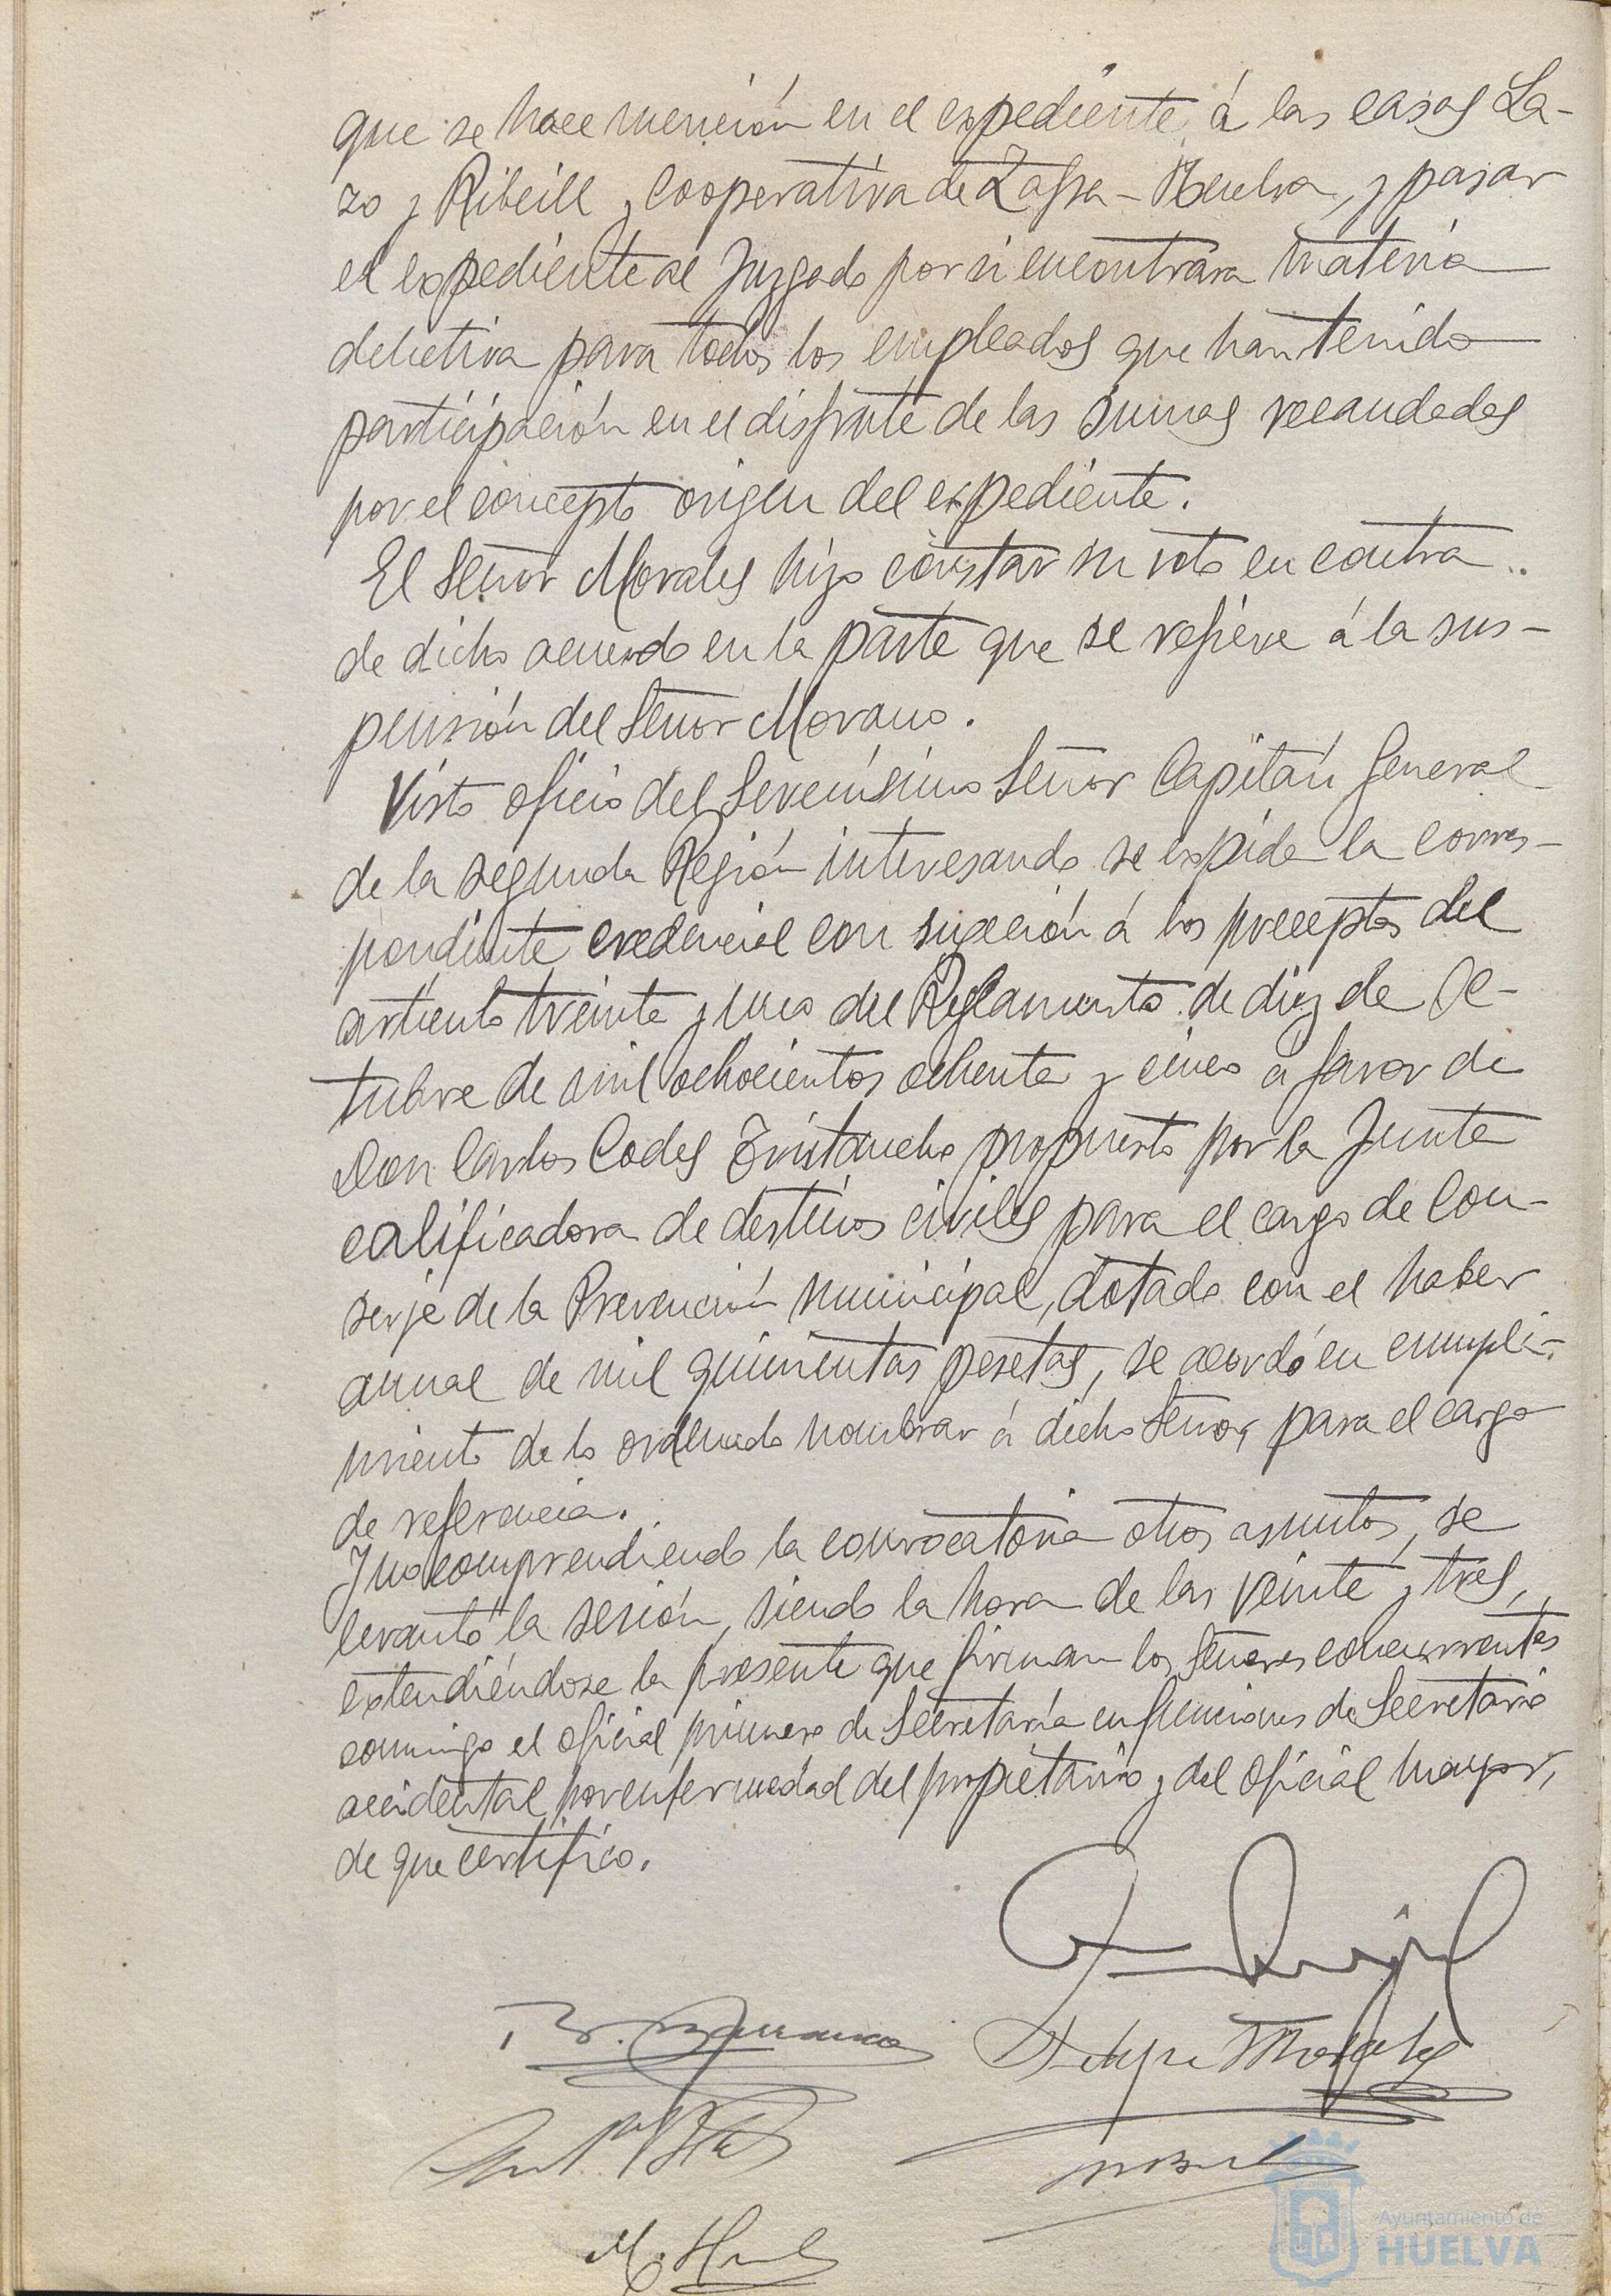 que se hace mención en el expediente á las casas La-
zo y Ribeill y Cooperativa de Zafra-Huelva, y pasar
el expediente al Juzgado por si encontrara materia
delictiva para todos los empleados que han tenido
participación en el disfrute de las sumas recaudadas
por el concepto origen del expediente.
El Señor Morales hizo constar su voto en contra
de dicho acuerdo en la parte que se refiere á la sus-
pensión del Señor Morano.
Visto oficio del Serenísimo Señor Capitán General
de la segunda Región interesando se expida la corres-
pondiente credencial con sujeción á los preceptos del
artículo treinta y uno del Reglamento de diez de Oc-
tubre de mil ochocientos ochenta y cinco á favor de
Don Carlos Codes propuesto por la Junta
calificadora de destinos civiles para el cargo de Con-
serje de la Prevención municipal, dotado con el haber
anual de mil quinientas pesetas, se acordó en cumpli-
miento de lo ordenado nombrar á dicho Señor para el cargo
de referencia.
Y no comprendiendo la convocatoria otros asuntos, se
levantó la sesión, siendo la hora de las veinte y tres,
extendiéndose la presente que firman los Señores concurrentes
conmigo el oficial primero de Secretaría en funciones de Secretario
accidental por enfermedad del propietario y del oficial mayor,
de que certifico.
Felipe Morales
Ayuntamiento de
HUELVA